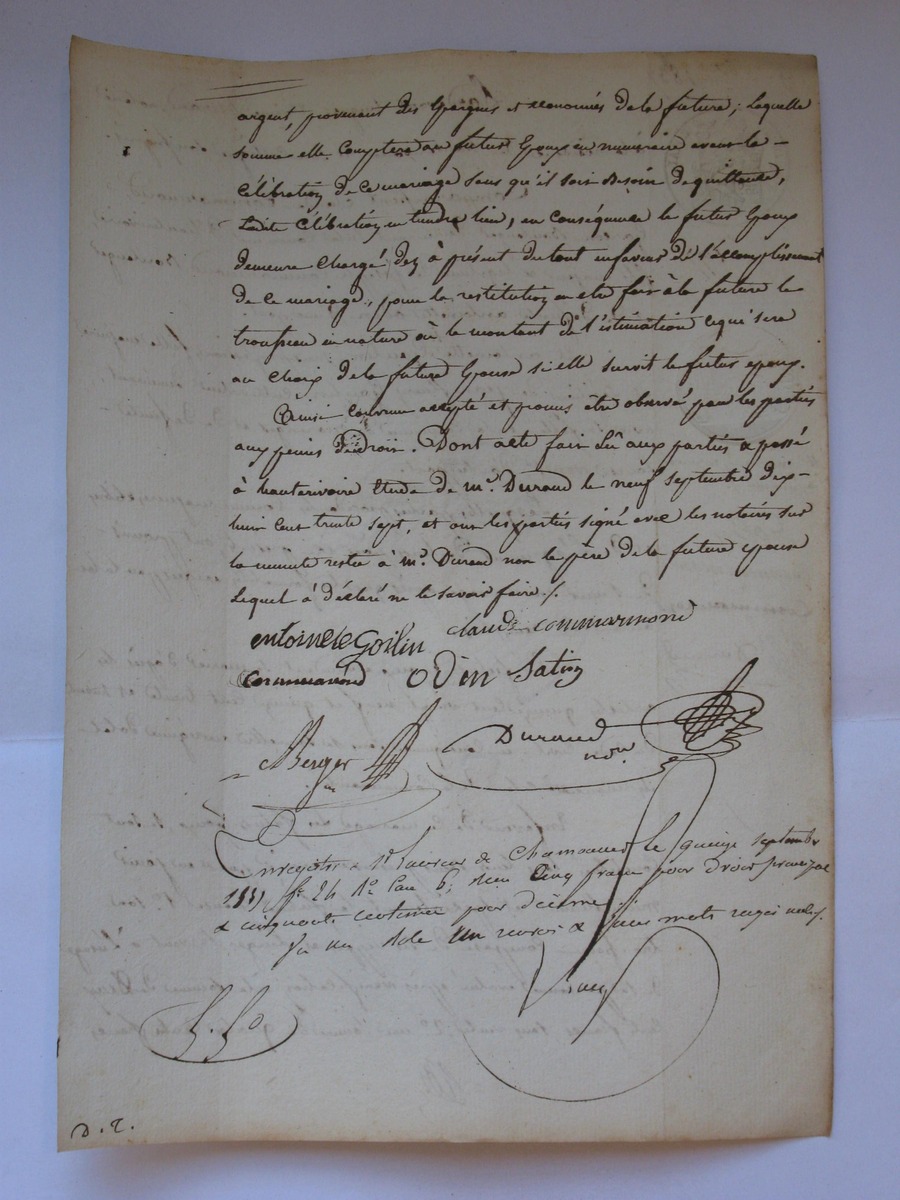 argent, provenant des Epargnes et économies de la future; Laquelle
somme elle Comptera au futur Epoux en numéraire avant la -
Célébration de ce mariage sans qu'il soit Besoin de quittance,
Ladite Célébration en tiendra lieu, en Conséquence le futur Epoux
demeure chargé dez à présent du tout en faveur de l'accomplissement
de ce mariage, pour la restitution en etre fait à la future le
trousseau en nature où le montant de l'estimation ce qui sera
au Choix de la future Epouse si elle survit le futur epoux.
Ainsi Convenu accepté et promis être observé par les parties
aux peines de droit. Dont acte fait Lû aux parties & passé
à hauterivoire Etude de me. Durand le neuf septembre dix-
huit Cent trente sept, et ont les parties signé avec les notaires sur
la minute restée à me. Durand non le père de la future epouse
Lequel à déclaré ne le savoir faire ./.
antoinette Goilin Claude Commarmond
Commarmond Odin Satin
Berger Durand
nore.
Enregistré à St. Laurent de Chamousset le quinze septembre
1837 fo. 24 Ro. Case 6; reçu Cinq francs pour droit principal
& cinquante centimes pour décime
un Role un renvoi & mots rayés nuls ./.
D. T.